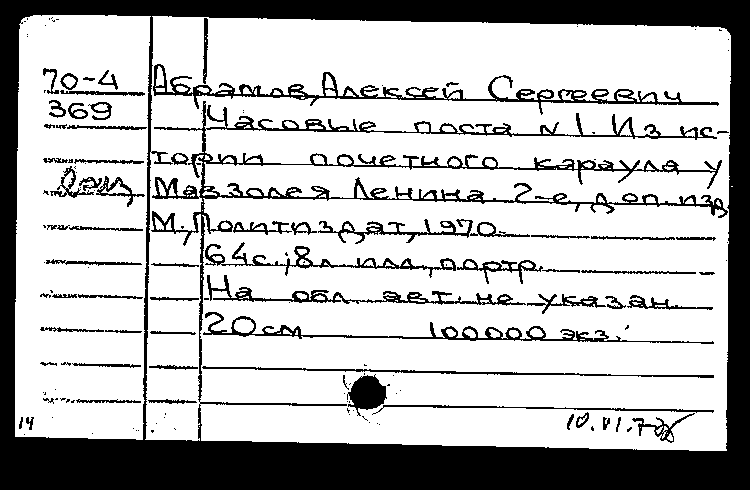 70-4 Абрамов, Алексей Сергеевич
369 Часовые поста N 1. Из ис-
тории почетного караула у
Мавзолея Ленина. 2-е, доп. изд.
М., Политиздат, 1970.
64 с.; 8 л илл., портр.
На обл. авт. не указан.
20 см 100000 экз.
14 10.VI.7